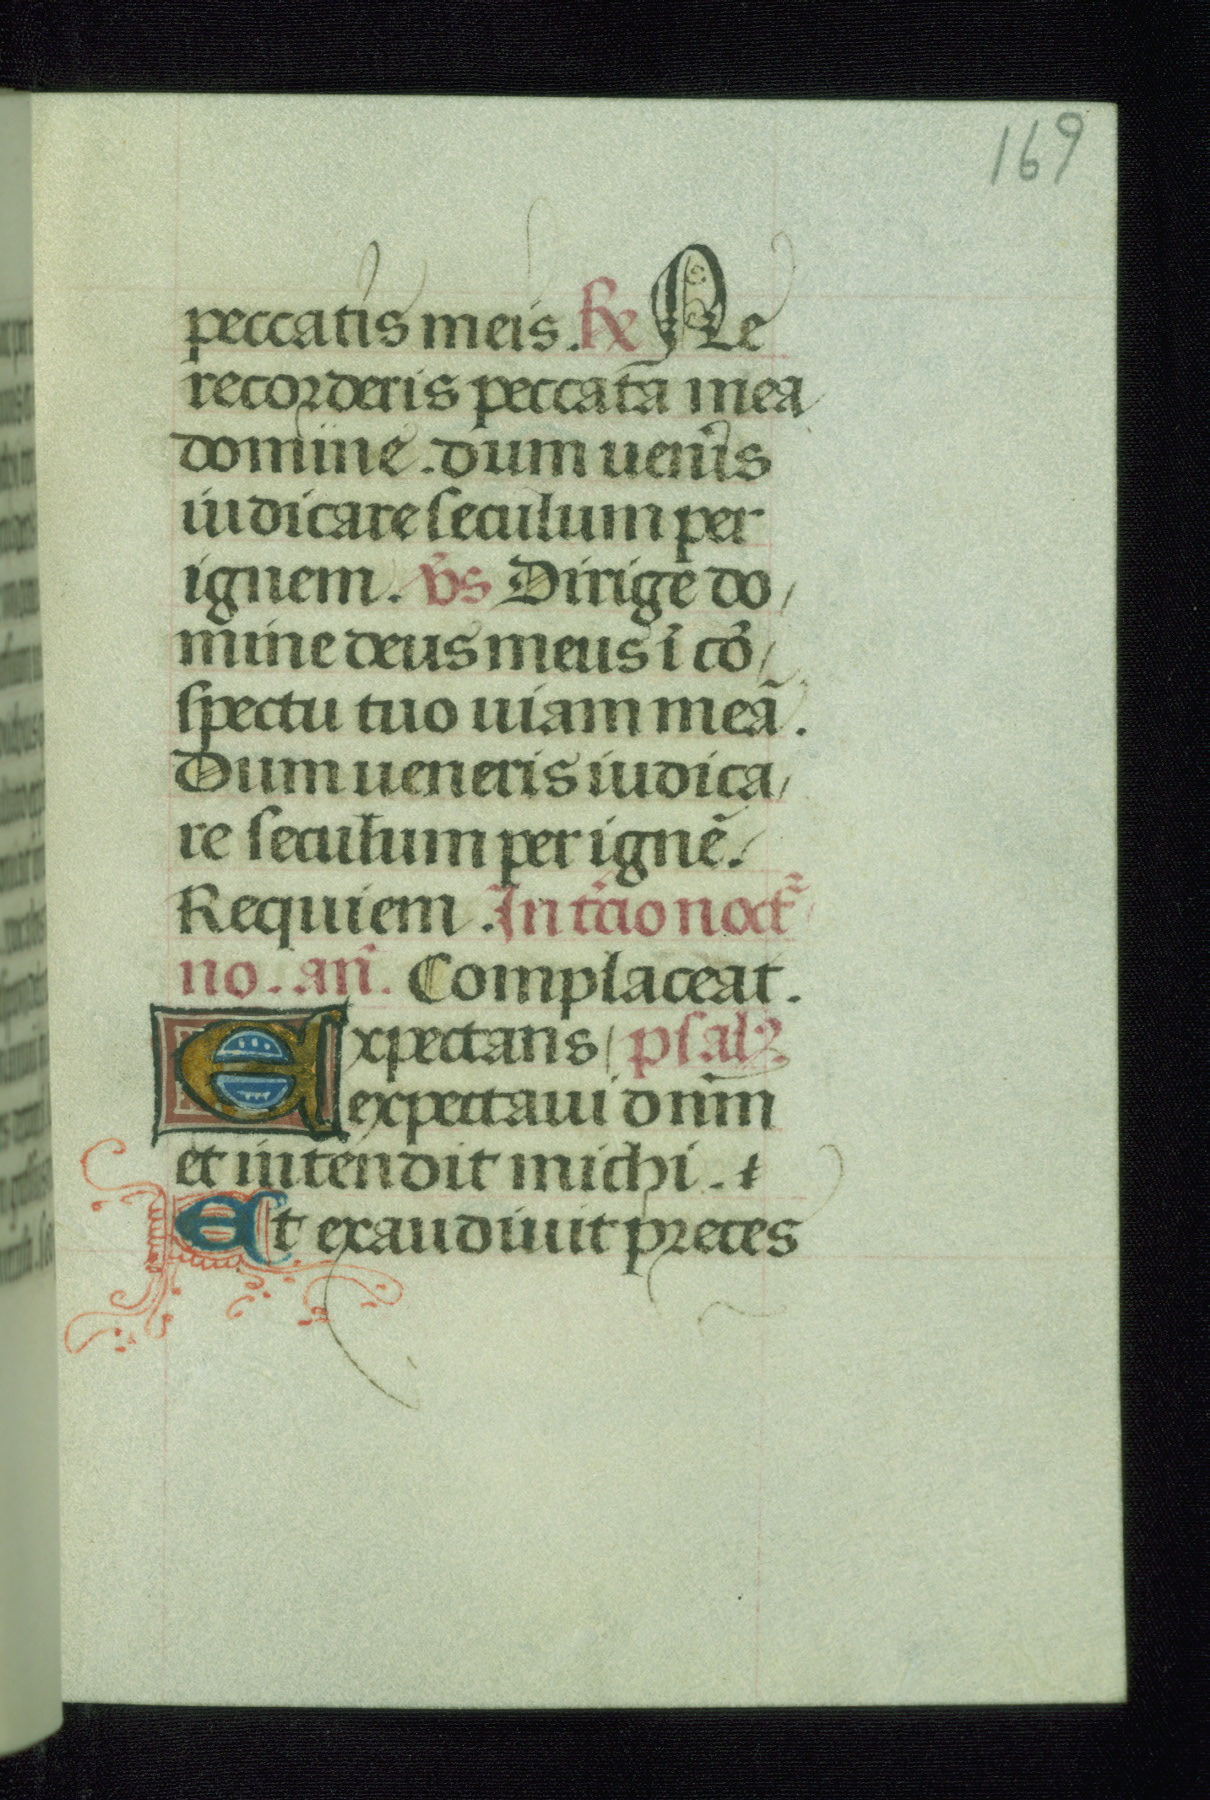 169
peccatis meis. Rx Ne
recorderis peccata mea
domine. dum uenis
iudicare seculum per
ignem. v̄s Dirige do/
mine deus meus ī cō/
spectu tuo uiam meā.
Dum ueneris iudica/
re seculum per ignē.
Requiem. In t̄cio noct̄
no. an̄. Complaceat.
Expectans psalꝫ
expectaui dn̄m
et intendit michi. ⁊
Et exaudiuit preces